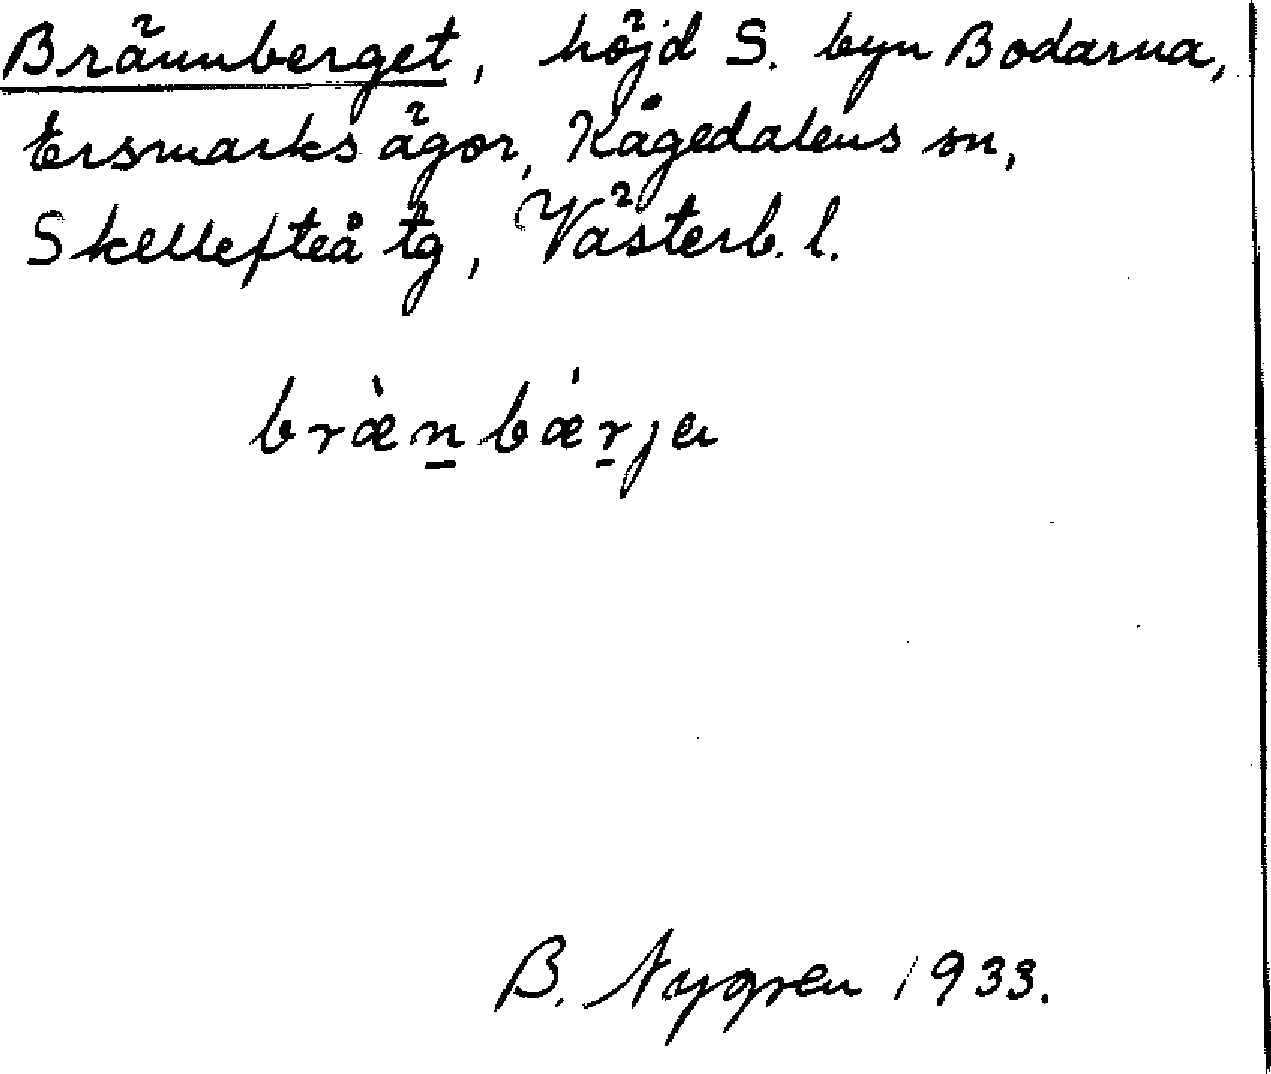 Brännberget, höjd S. byn Bodarna,
Ersmarks ägor, Kågedalens sn,
Skellefteå tg, Västerb. l.
bræ̀n̲bǽr̲ja
B. Nygren 1933.